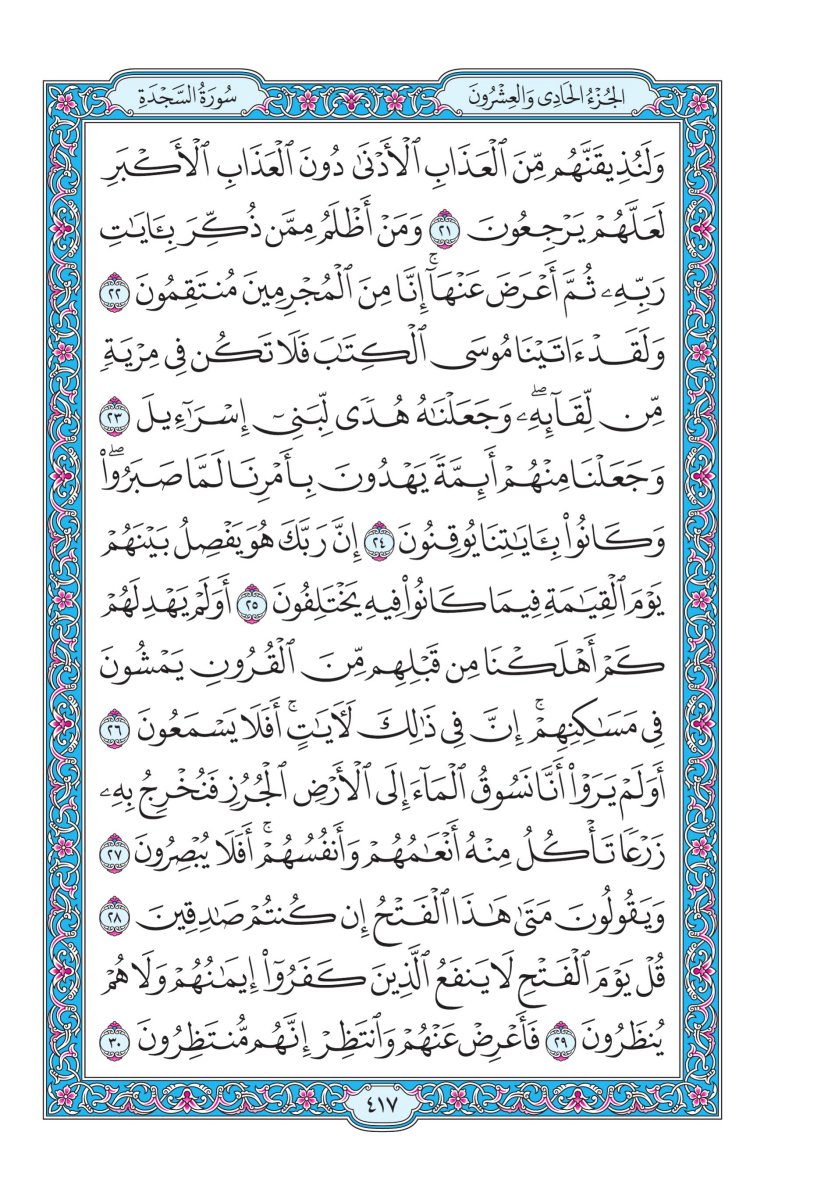 الجُزْءُ الحَادِى وَالعِشْرُونَ
سُورَةُ السَّجْدَةِ
وَلَنُذِيقَنَّهُم مِّنَ ٱلْعَذَابِ ٱلْأَدْنَىٰ دُونَ ٱلْعَذَابِ ٱلْأَكْبَرِ
لَعَلَّهُمْ يَرْجِعُونَ ٢١ وَمَنْ أَظْلَمُ مِمَّن ذُكِّرَ بِـَٔايَٰتِ
رَبِّهِۦ ثُمَّ أَعْرَضَ عَنْهَآ ۚ إِنَّا مِنَ ٱلْمُجْرِمِينَ مُنتَقِمُونَ ٢٢
وَلَقَدْ ءَاتَيْنَا مُوسَى ٱلْكِتَٰبَ فَلَا تَكُن فِى مِرْيَةٍ
مِّن لِّقَآئِهِۦ ۖ وَجَعَلْنَٰهُ هُدًى لِّبَنِىٓ إِسْرَٰٓءِيلَ ٢٣
وَجَعَلْنَا مِنْهُمْ أَئِمَّةً يَهْدُونَ بِأَمْرِنَا لَمَّا صَبَرُوا۟ ۖ
وَكَانُوا۟ بِـَٔايَٰتِنَا يُوقِنُونَ ٢٤ إِنَّ رَبَّكَ هُوَ يَفْصِلُ بَيْنَهُمْ
يَوْمَ ٱلْقِيَٰمَةِ فِيمَا كَانُوا۟ فِيهِ يَخْتَلِفُونَ ٢٥ أَوَلَمْ يَهْدِ لَهُمْ
كَمْ أَهْلَكْنَا مِن قَبْلِهِم مِّنَ ٱلْقُرُونِ يَمْشُونَ
فِى مَسَٰكِنِهِمْ ۚ إِنَّ فِى ذَٰلِكَ لَـَٔايَٰتٍ ۚ أَفَلَا يَسْمَعُونَ ٢٦
أَوَلَمْ يَرَوْا۟ أَنَّا نَسُوقُ ٱلْمَآءَ إِلَى ٱلْأَرْضِ ٱلْجُرُزِ فَنُخْرِجُ بِهِۦ
زَرْعًا تَأْكُلُ مِنْهُ أَنْعَٰمُهُمْ وَأَنفُسُهُمْ ۚ أَفَلَا يُبْصِرُونَ ٢٧
وَيَقُولُونَ مَتَىٰ هَٰذَا ٱلْفَتْحُ إِن كُنتُمْ صَٰدِقِينَ ٢٨
قُلْ يَوْمَ ٱلْفَتْحِ لَا يَنفَعُ ٱلَّذِينَ كَفَرُوٓا۟ إِيمَٰنُهُمْ وَلَا هُمْ
يُنظَرُونَ ٢٩ فَأَعْرِضْ عَنْهُمْ وَٱنتَظِرْ إِنَّهُم مُّنتَظِرُونَ ٣٠
٤١٧